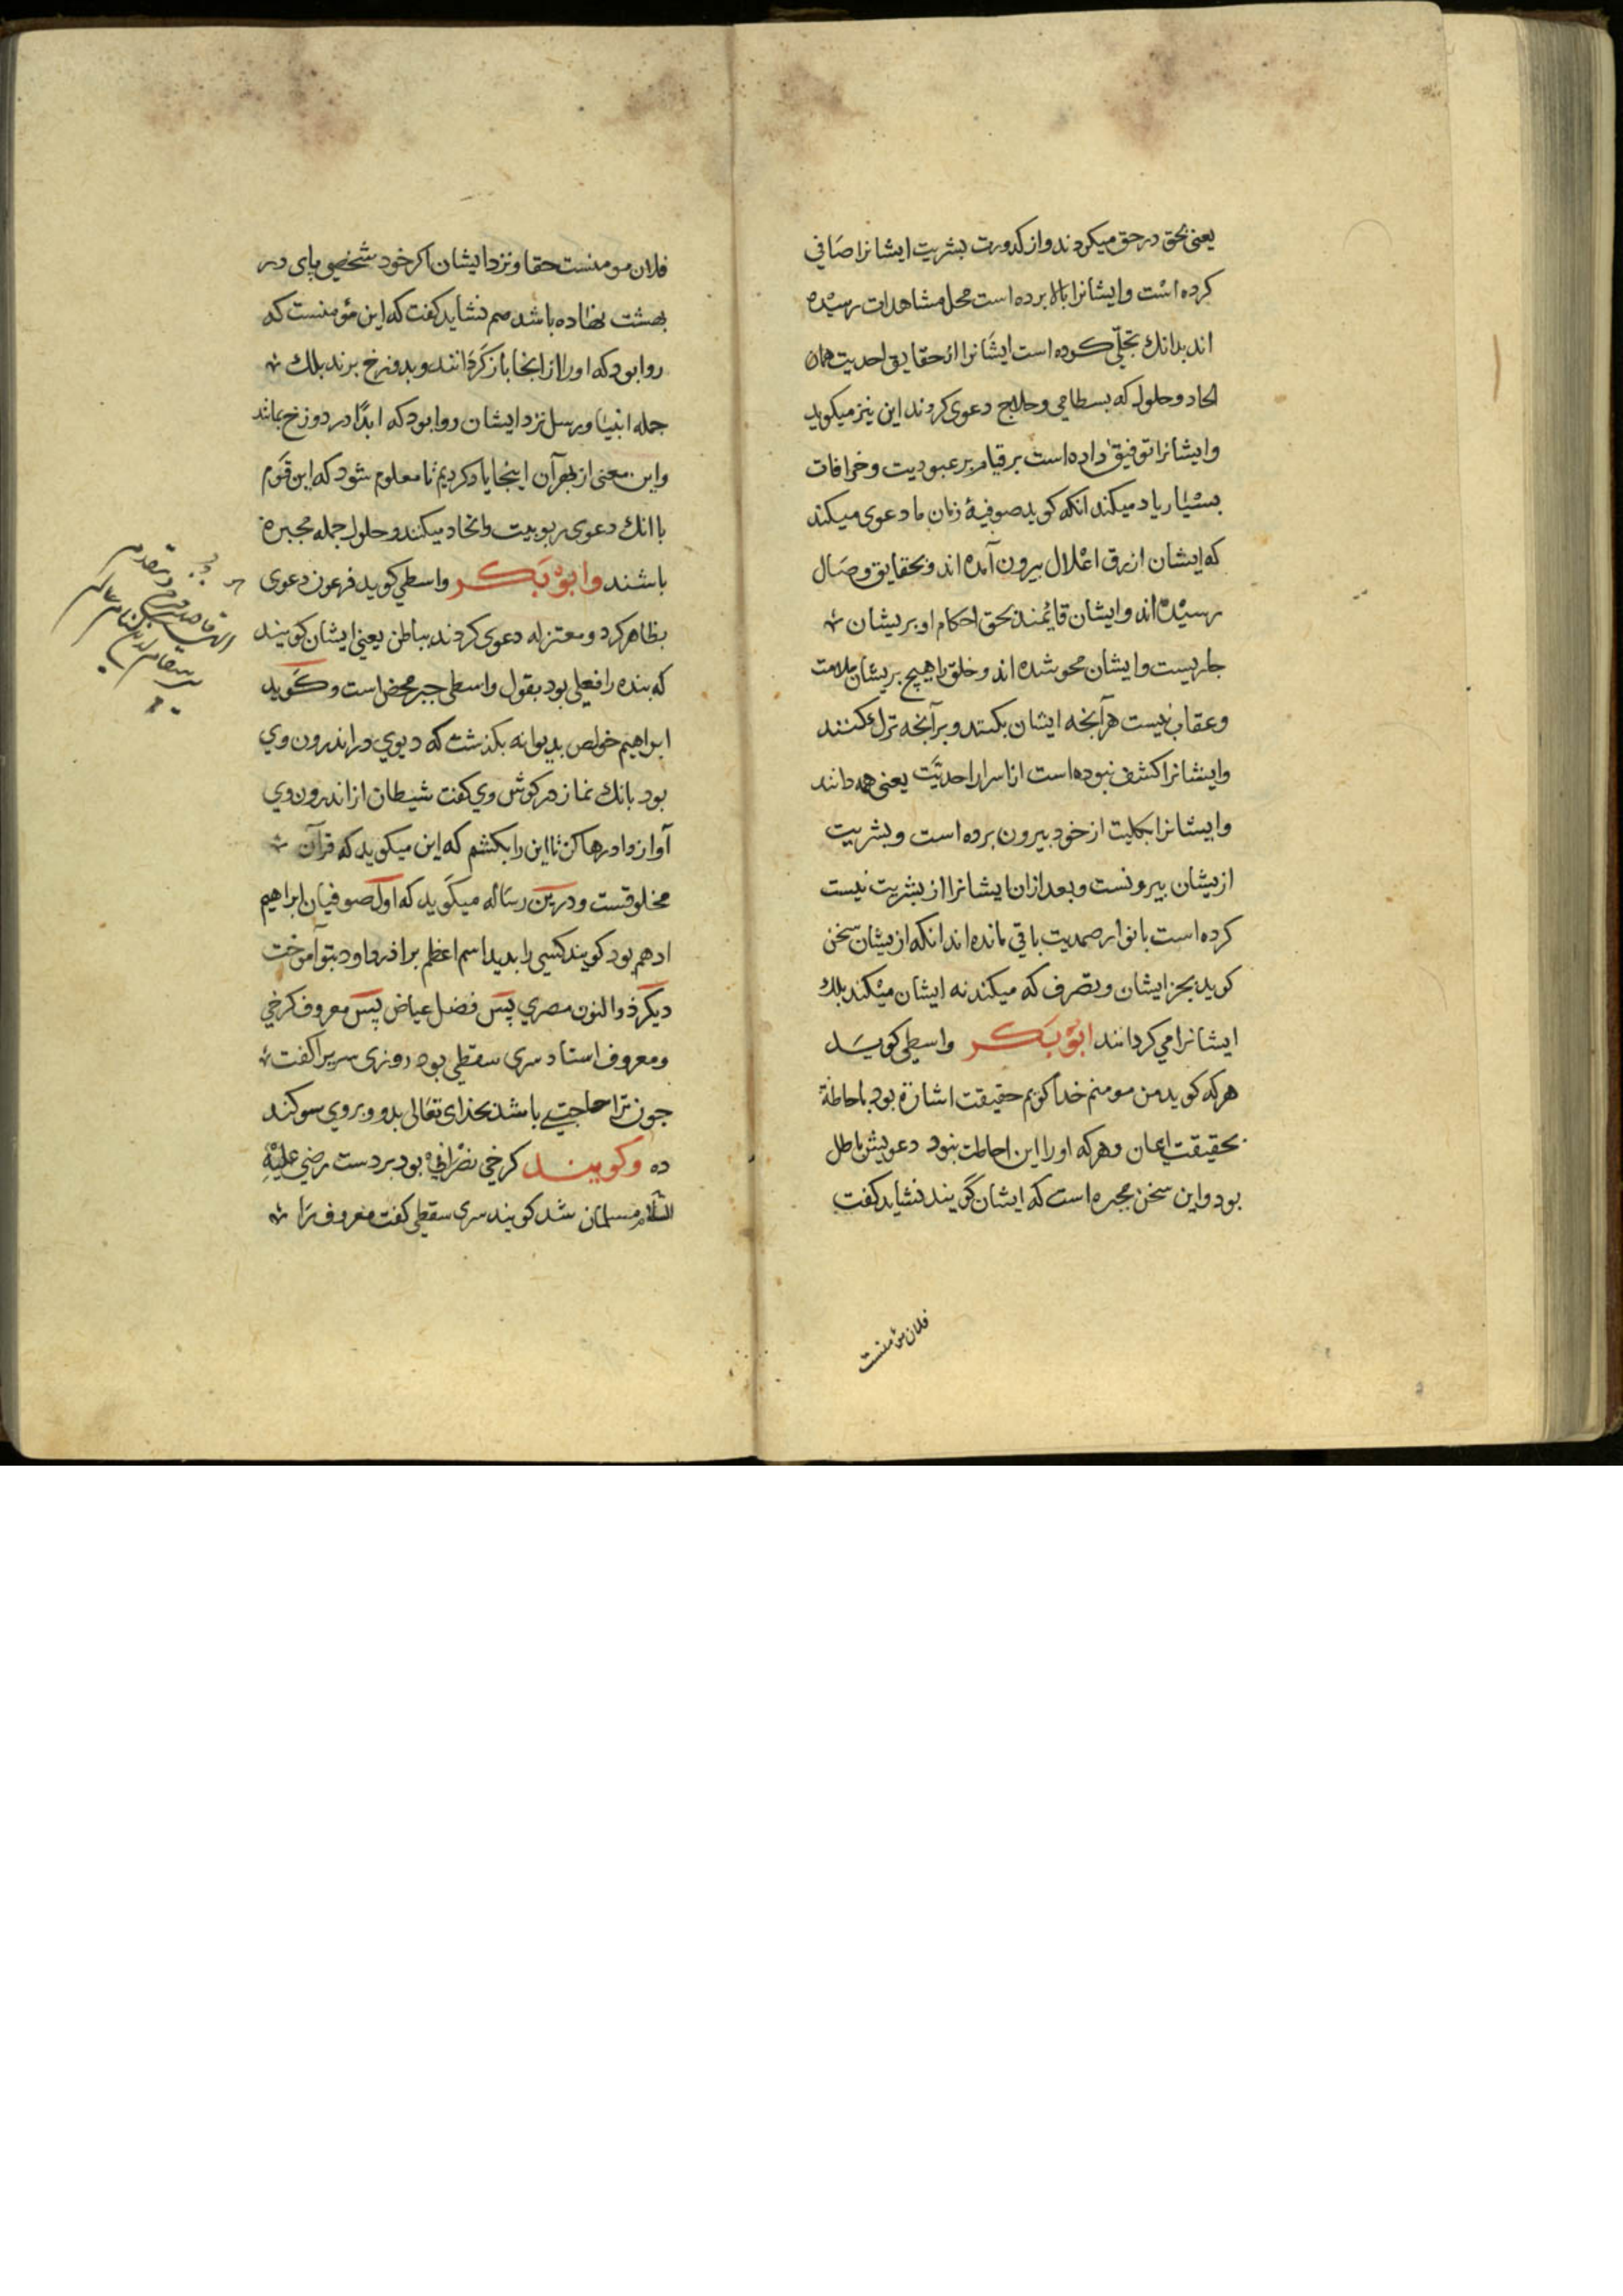 یعنی بحق در حق میکردند و از کدورت بشریت ایشانرا صافی
کرده است وایشانرا بالا برده است محل مشاهدات رسیده
اند بدانك تجلّی کرده است ایشانرا از حقایق احدیت همان
الحاد و حلول که بسطامی و حلاج دعوی کردند این نیز میکوید
وایشانرا توفیق داده است بر قیام بر عبودیت و خرافات
بسیار یاد میکند انکه کوید صوفیهٔ زمان ما دعوی میکند
که ایشان از رق اغلال بیرون آمده اند و بحقایق وصال
رسیده اند وایشان قایمند بحق احکام او بریشان
جاریست وایشان محو شده اند و خلق را هیچ بریشان ملامت
و عقاب نیست هر آنچه ایشان بکنند و بر آنچه ترك کنند
وایشانرا کشف نبوده است از اسرار احدیّت یعنی همه دانند
وایشانرا بکلیت از خود بیرون برده است و بشریت
ازیشان بیرونست و بعد از ان ایشانرا از بشریت نیست
کرده است بانوار صمدیت باقی مانده اند انکه ازیشان سخن
کوید بجز ایشان و تصرف که میکند نه ایشان میکند بلك
ایشانرا می کردانند ابو بکر واسطی کوید
هر که کوید من مومنم خدا کویم حقیقت اشارة بود باحاطة
بحقیقت ایمان و هر که اورا این احاطت نبود دعویش باطل
بود واین سخن مجبره است که ایشان گویند نشاید کفت
فلان مؤمنست
فلان مومنست حقا و نزد ایشان اکر خود شخصی پای در
بهشت نهاده باشد هم نشاید کفت که این مؤمنست که
روا بود که اورا از انجا باز کردانند و بدوزخ برند بلك
جمله انبیا و رسل نزد ایشان روا بود که ابدًا در دوزخ بمانند
واین معنی از بهر آن اینجا یاد کردیم تا معلوم شود که این قوم
با انك دعوی ربوبیت واتحاد میکند و حلول جمله مجبره
باشند وابو بکر واسطی کوید فرعون دعوی
بظاهر کرد و معتزله دعوی کردند بباطن یعنی ایشان کویند
که بنده را فعلی بود بقول واسطی جبر محض است و کوید
ابراهیم خواص بدیوانه بکذشت که دیوی در اندرون وی
بود بانك نماز در کوش وی کفت شیطان از اندرون وی
آواز داد رها کن تا این را بکشم که این میکوید که قرآن
مخلوقست و درین رساله میکوید که اول صوفیان ابراهیم
ادهم بود کویند کسی را بدید اسم اعظم برادر داود بتو آموخت
دیگر ذوالنون مصری پس فضل عیاض پس معروف کرخی
و معروف استاد سری سقطی بود روزی سریرا کفت
چون ترا حاجتی باشد بخدای تعالی بدو بروی سوکند
ده وکویند کرخی نصرانی بود بر دست رضی علیه
السلام مسلمان شد کویند سری سقطی کفت معروف ترا